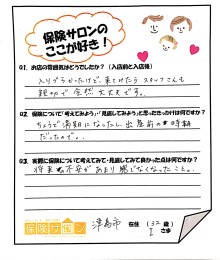 保険サロンの
ここが好き！
Q1. お店の雰囲気はどうでしたか？（入店前と入店後）
入りづらかったけど、来てみたらスタッフさんも
親切で全然大丈夫です。
Q2. 保険について「考えてみよう」・「見直してみよう」と思ったきっかけは何ですか？
ちょうど満期になったし出産前の時期
だったので。
Q3. 実際に保険について考えてみて・見直してみて良かった点は何ですか？
将来の不安があまり感じなくなったこと。
保険サロン
津島市 在住 (32歳)
I さま